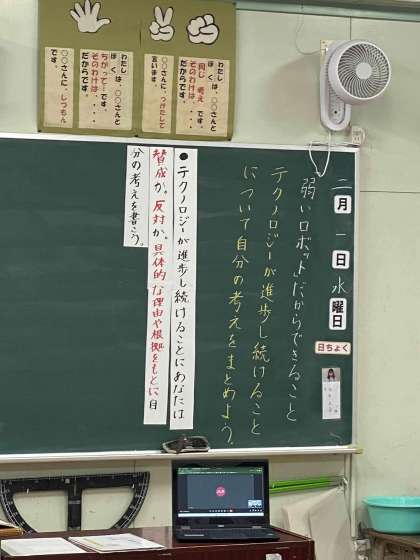 わたし
ぼくは、○○さんと
同じ考えです。
そのわけは・・・・
だからです。
○○さんに、つけたして
言います。
わたし
ぼくは、○○さんと
ちがって…です。
そのわけは・・・・
だからです。
○○さんに、しつもん
です。
二月一日水曜日
日ちょく
弱いロボットだからできること
テクノロジーが進歩し続けること
について自分の考えをまとめよう。
●テクノロジーが進歩し続けることにあなたは
賛成か。反対か。具体的な理由や根拠をもとに自
分の考えを書こう。